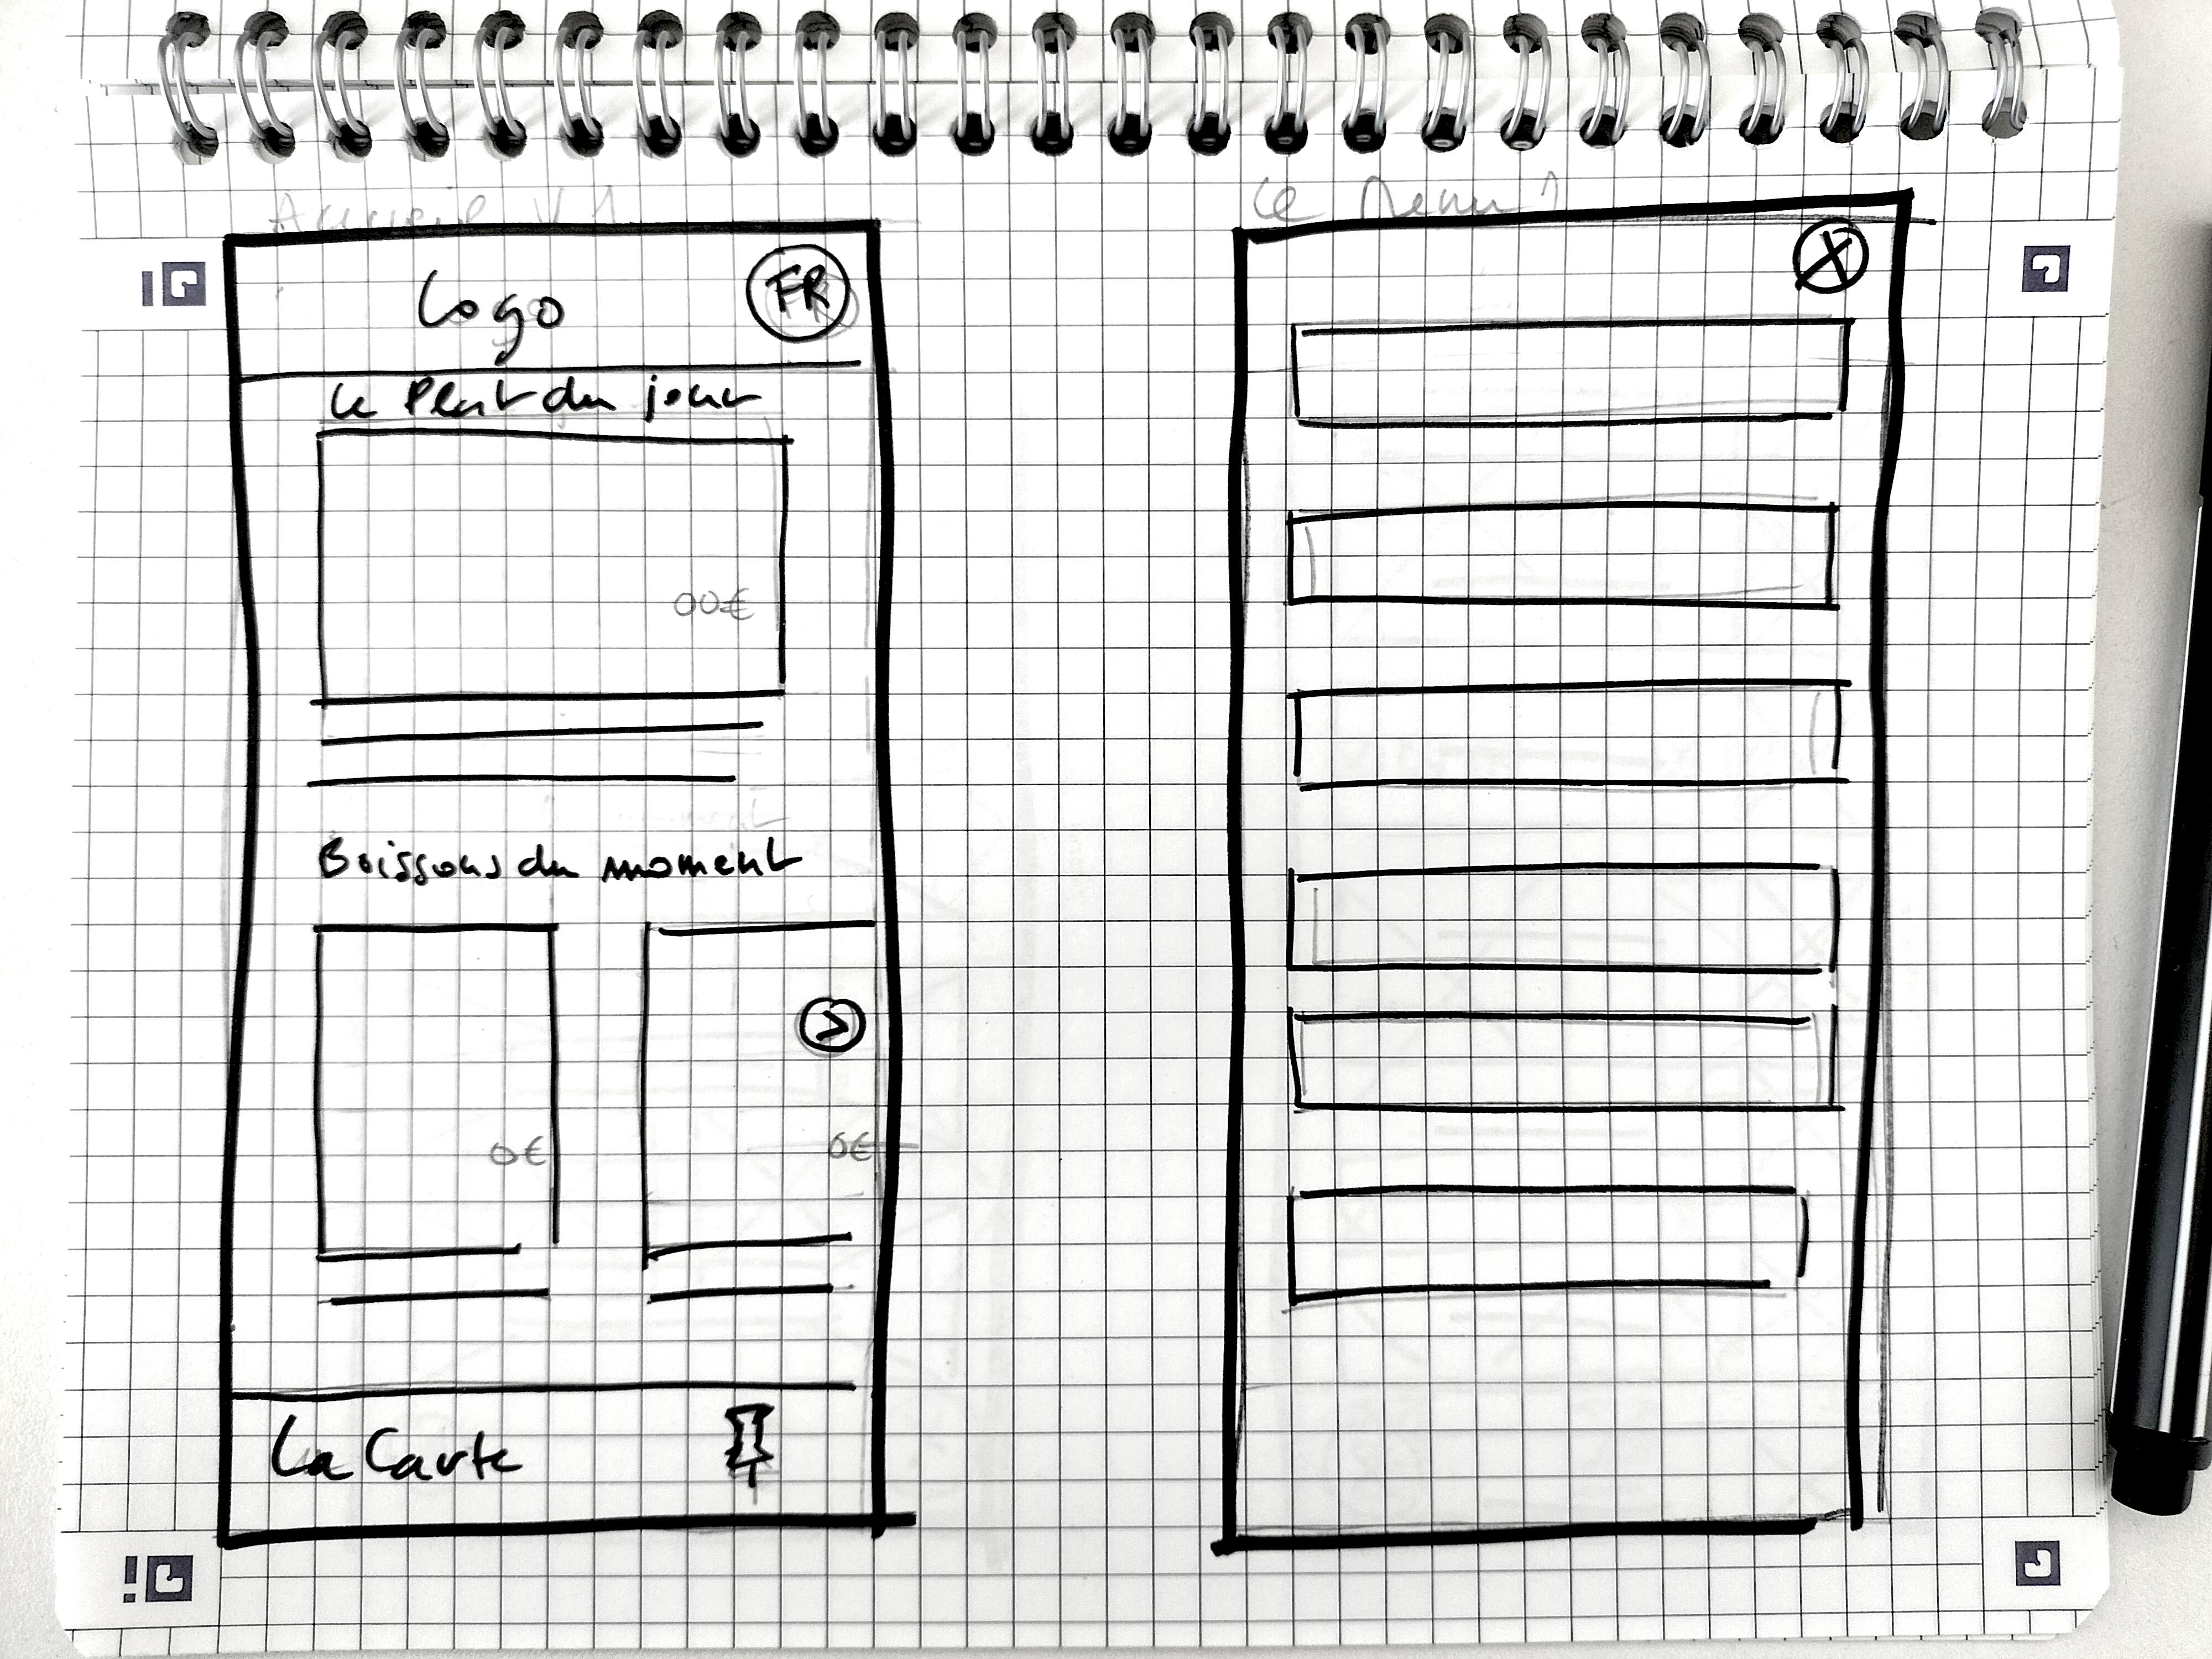 Accueil V1
Logo
FR
Le Plat du jour
00€
Boissons du moment
>
0€
0€
La Carte
Le Menu 1
X